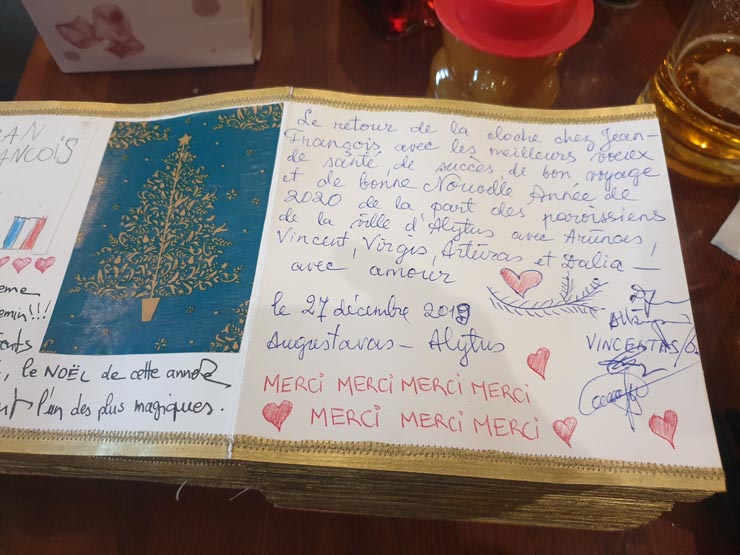 AN
ANCOIS
eme
emin!!!
ants
, le NOËL de cette année
t l'un des plus magiques.
Le retour de la cloche chez Jean-
François avec les meilleurs voeux
de santé, de succès, de bon voyage
et de bonne Nouvelle Année de
2020 de la part des paroissiens
de la ville d'Alytus avec Arūnas,
Vincent, Virgis, Artūras et Dalia —
avec amour
le 27 décembre 2019
Augustavas - Alytus
VINCENTAS
MERCI MERCI MERCI MERCI
MERCI MERCI MERCI